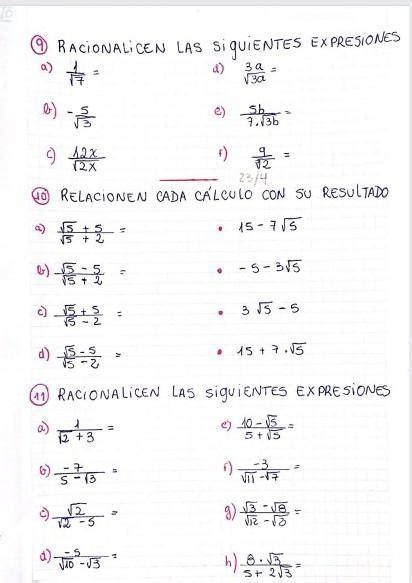 9 RACIONALICEN LAS SIGUIENTES EXPRESIONES
a) 1/√7 = d) 3a/√3a =
b) -5/√3 e) 5b/7.√3b =
c) 12x/√2x f) 9/√2 =
23/4
10 RELACIONEN CADA CÁLCULO CON SU RESULTADO
a) √5 + 5/√5 + 2 = • 15 - 7√5
b) √5 - 5/√5 + 2 = • - 5 - 3√5
c) √5 + 5/√5 - 2 = • 3 √5 - 5
d) √5 - 5/√5 - 2 = • 15 + 7.√5
11 RACIONALICEN LAS SIGUIENTES EXPRESIONES
a) 1/√2 + 3 = e) 10 - √5/5 + √5 =
b) -7/5 - √3 = f) -3/√11 - √7 =
c) √2/√2 - 5 = g) √3 - √8/√12 - √8 =
d) -5/√10 - √3 = h) 8.√3/5 + 2√3 =